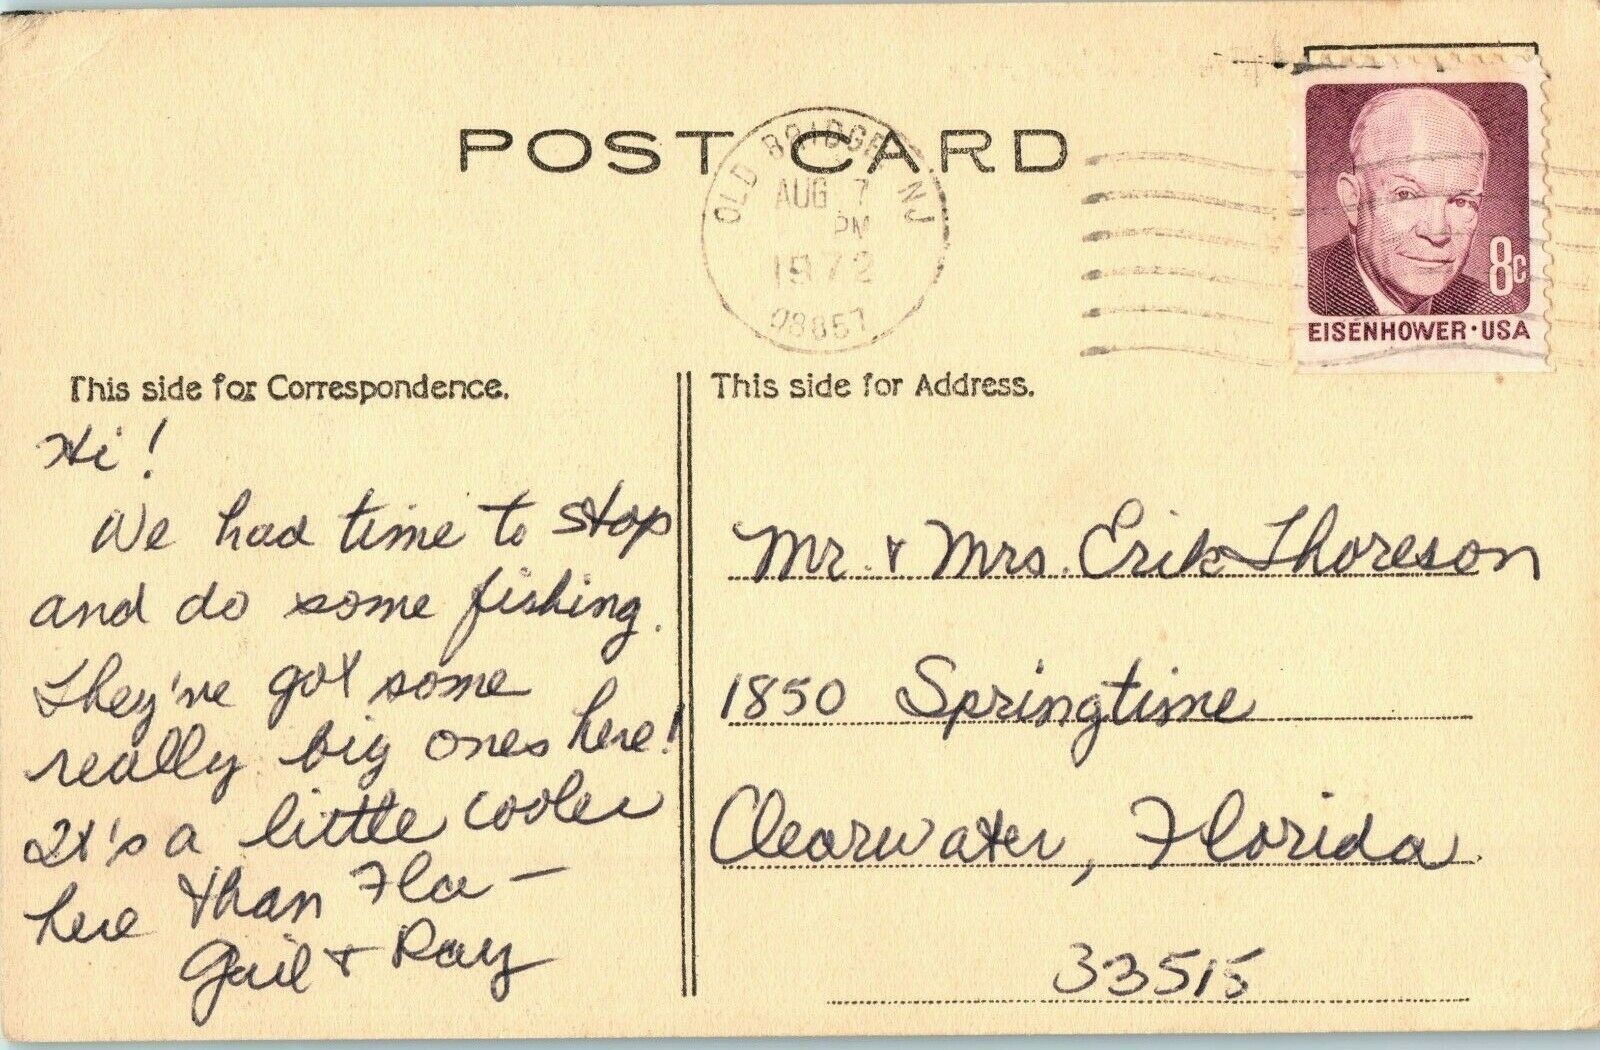 POST CARD
OLD BRIDGE NJ
AUG 7
PM
1972
08857
8c
EISENHOWER·USA
This side for Correspondence.
Hi!
We had time to stop
and do some fishing.
They've got some
really big ones here!
It's a little cooler
here than Fla —
Gail + Ray
This side for Address.
Mr. + Mrs. Erik Thoreson
1850 Springtime
Clearwater, Florida
33515